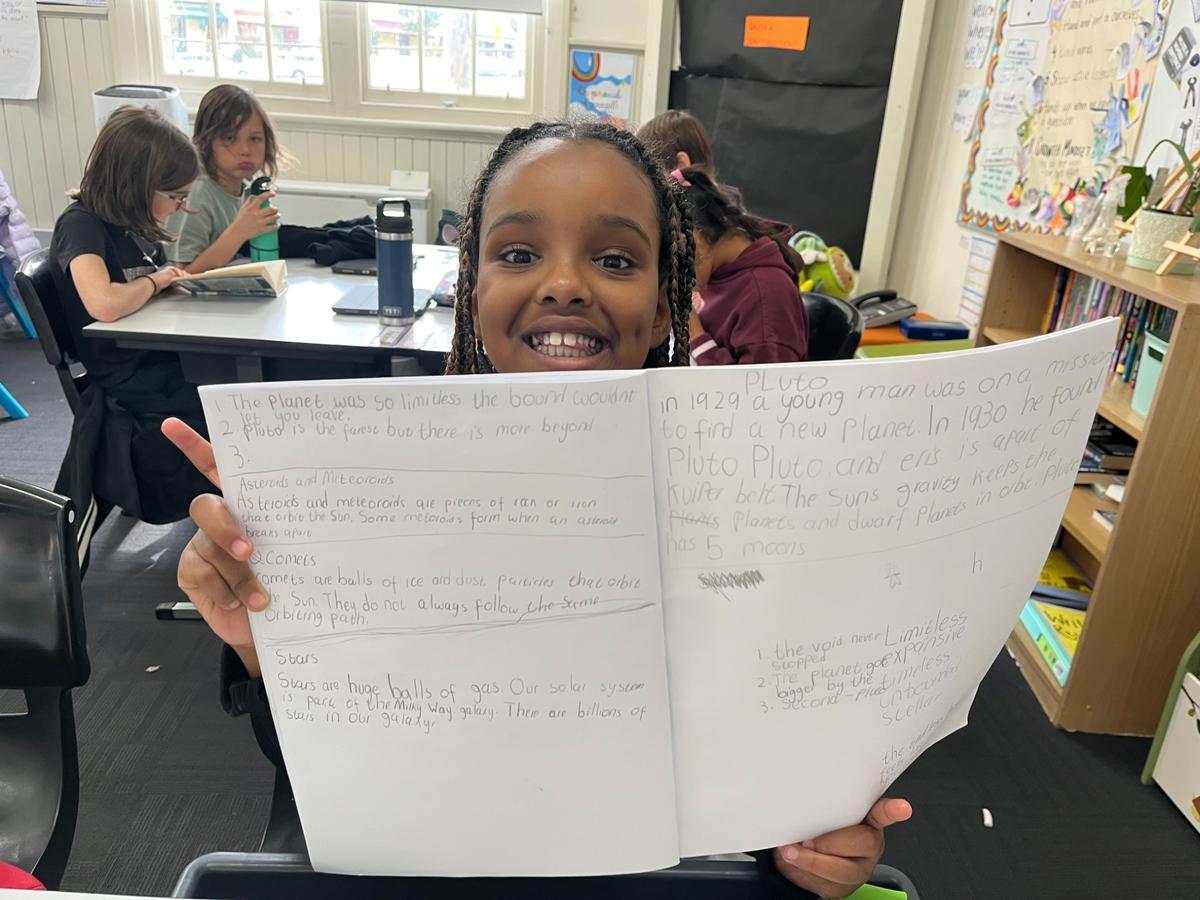 1. The Planet was so limitless the bound wouldnt
let you leave.
2 Pluto is the farest but there is more beyond
3.
Asteroids and Meteoroids
Asteroids and meteoroids are pieces of rock or iron
that orbit the Sun. Some metoroids form when an asteroid
breaks apart
Comets
comets are balls of ice and dust particles that orbit
the Sun. They do not always follow the same
orbiting path.
Stars
Stars are huge balls of gas. Our solar system
is park of the Milky Way galaxy. There are billions of
stars in our galaxy.
PLuto
in 1929 a young man was on a mission
to find a new Planet. In 1930 he found
Pluto Pluto and eris is apart of
Kuiper belt The Suns gravity keeps the
Planets and dwarf Planets in orbit. Pluto
has 5 moons
h
1. the void never
stopped
2. The planet got
bigger by the
3. second
Limitless
expansive
timeless
unbound
Stellar
the
YETI
GROWTH MINDSET